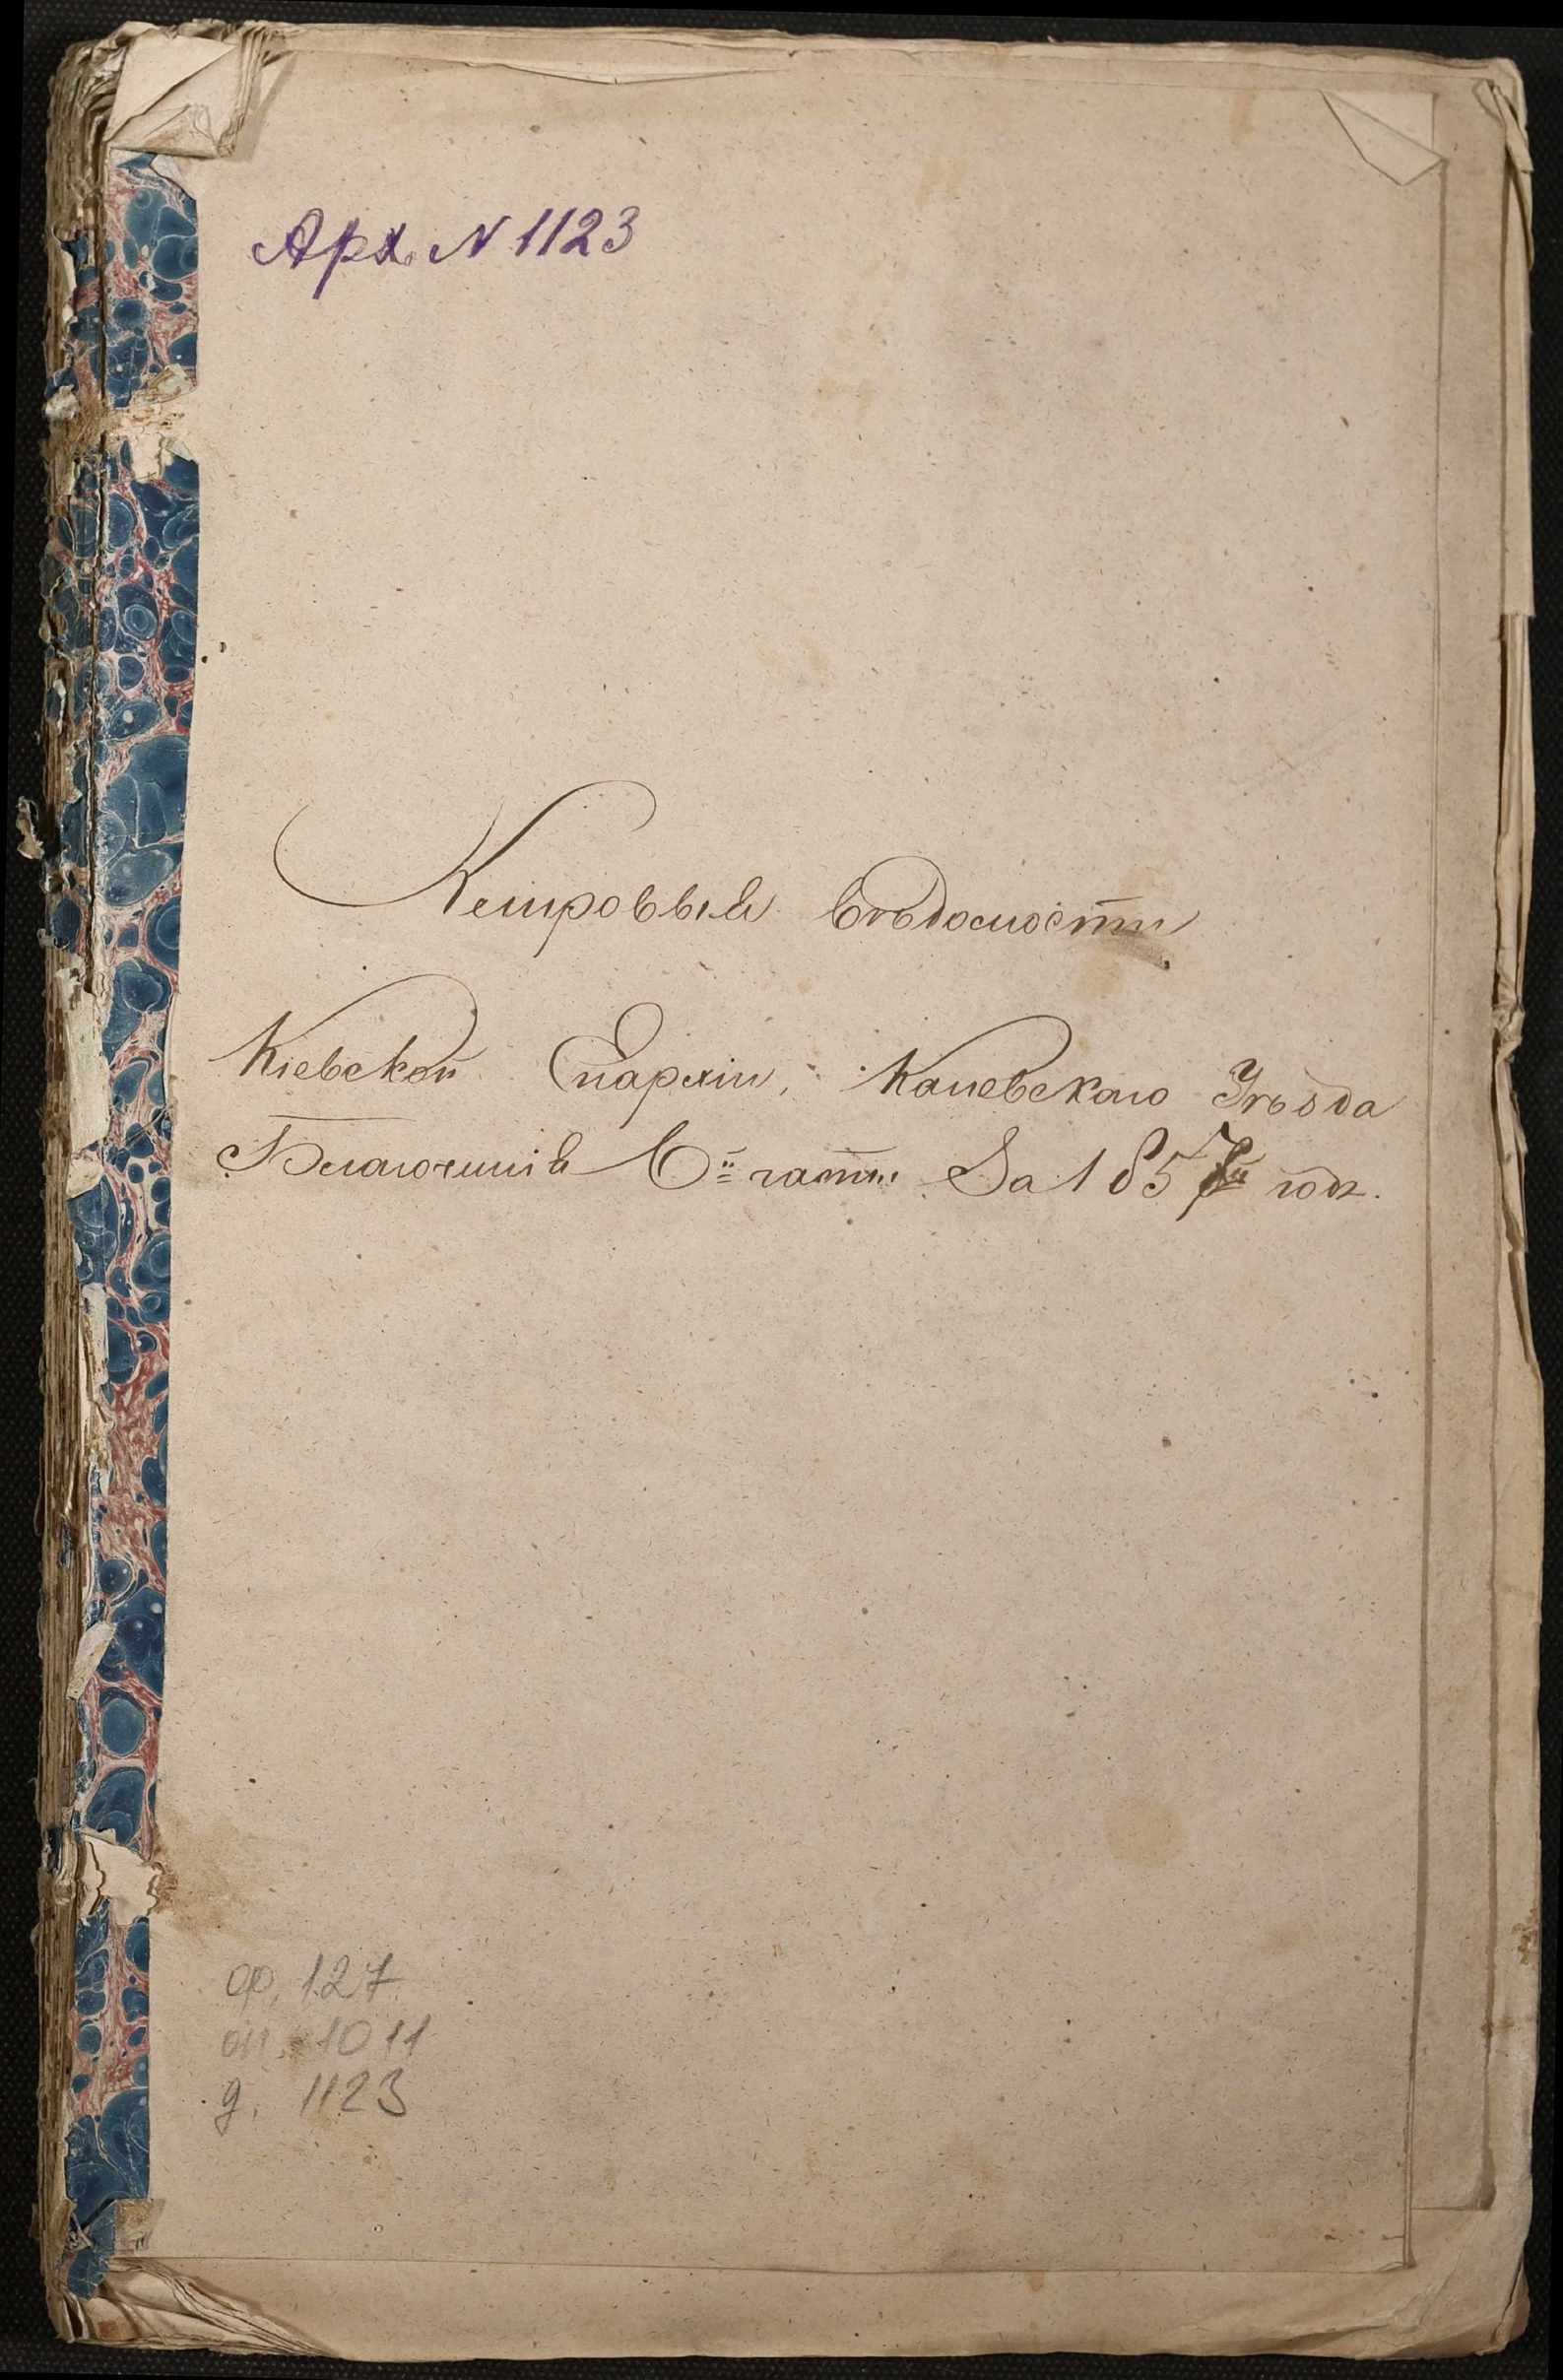 Арх. N 1123
Клировыя вѣдомости
Кіевской Епархіи, Каневскаго Уѣзда
Благочинія 6й части За 1857й годъ.
ф. 127.
оп. 1011
д. 1123